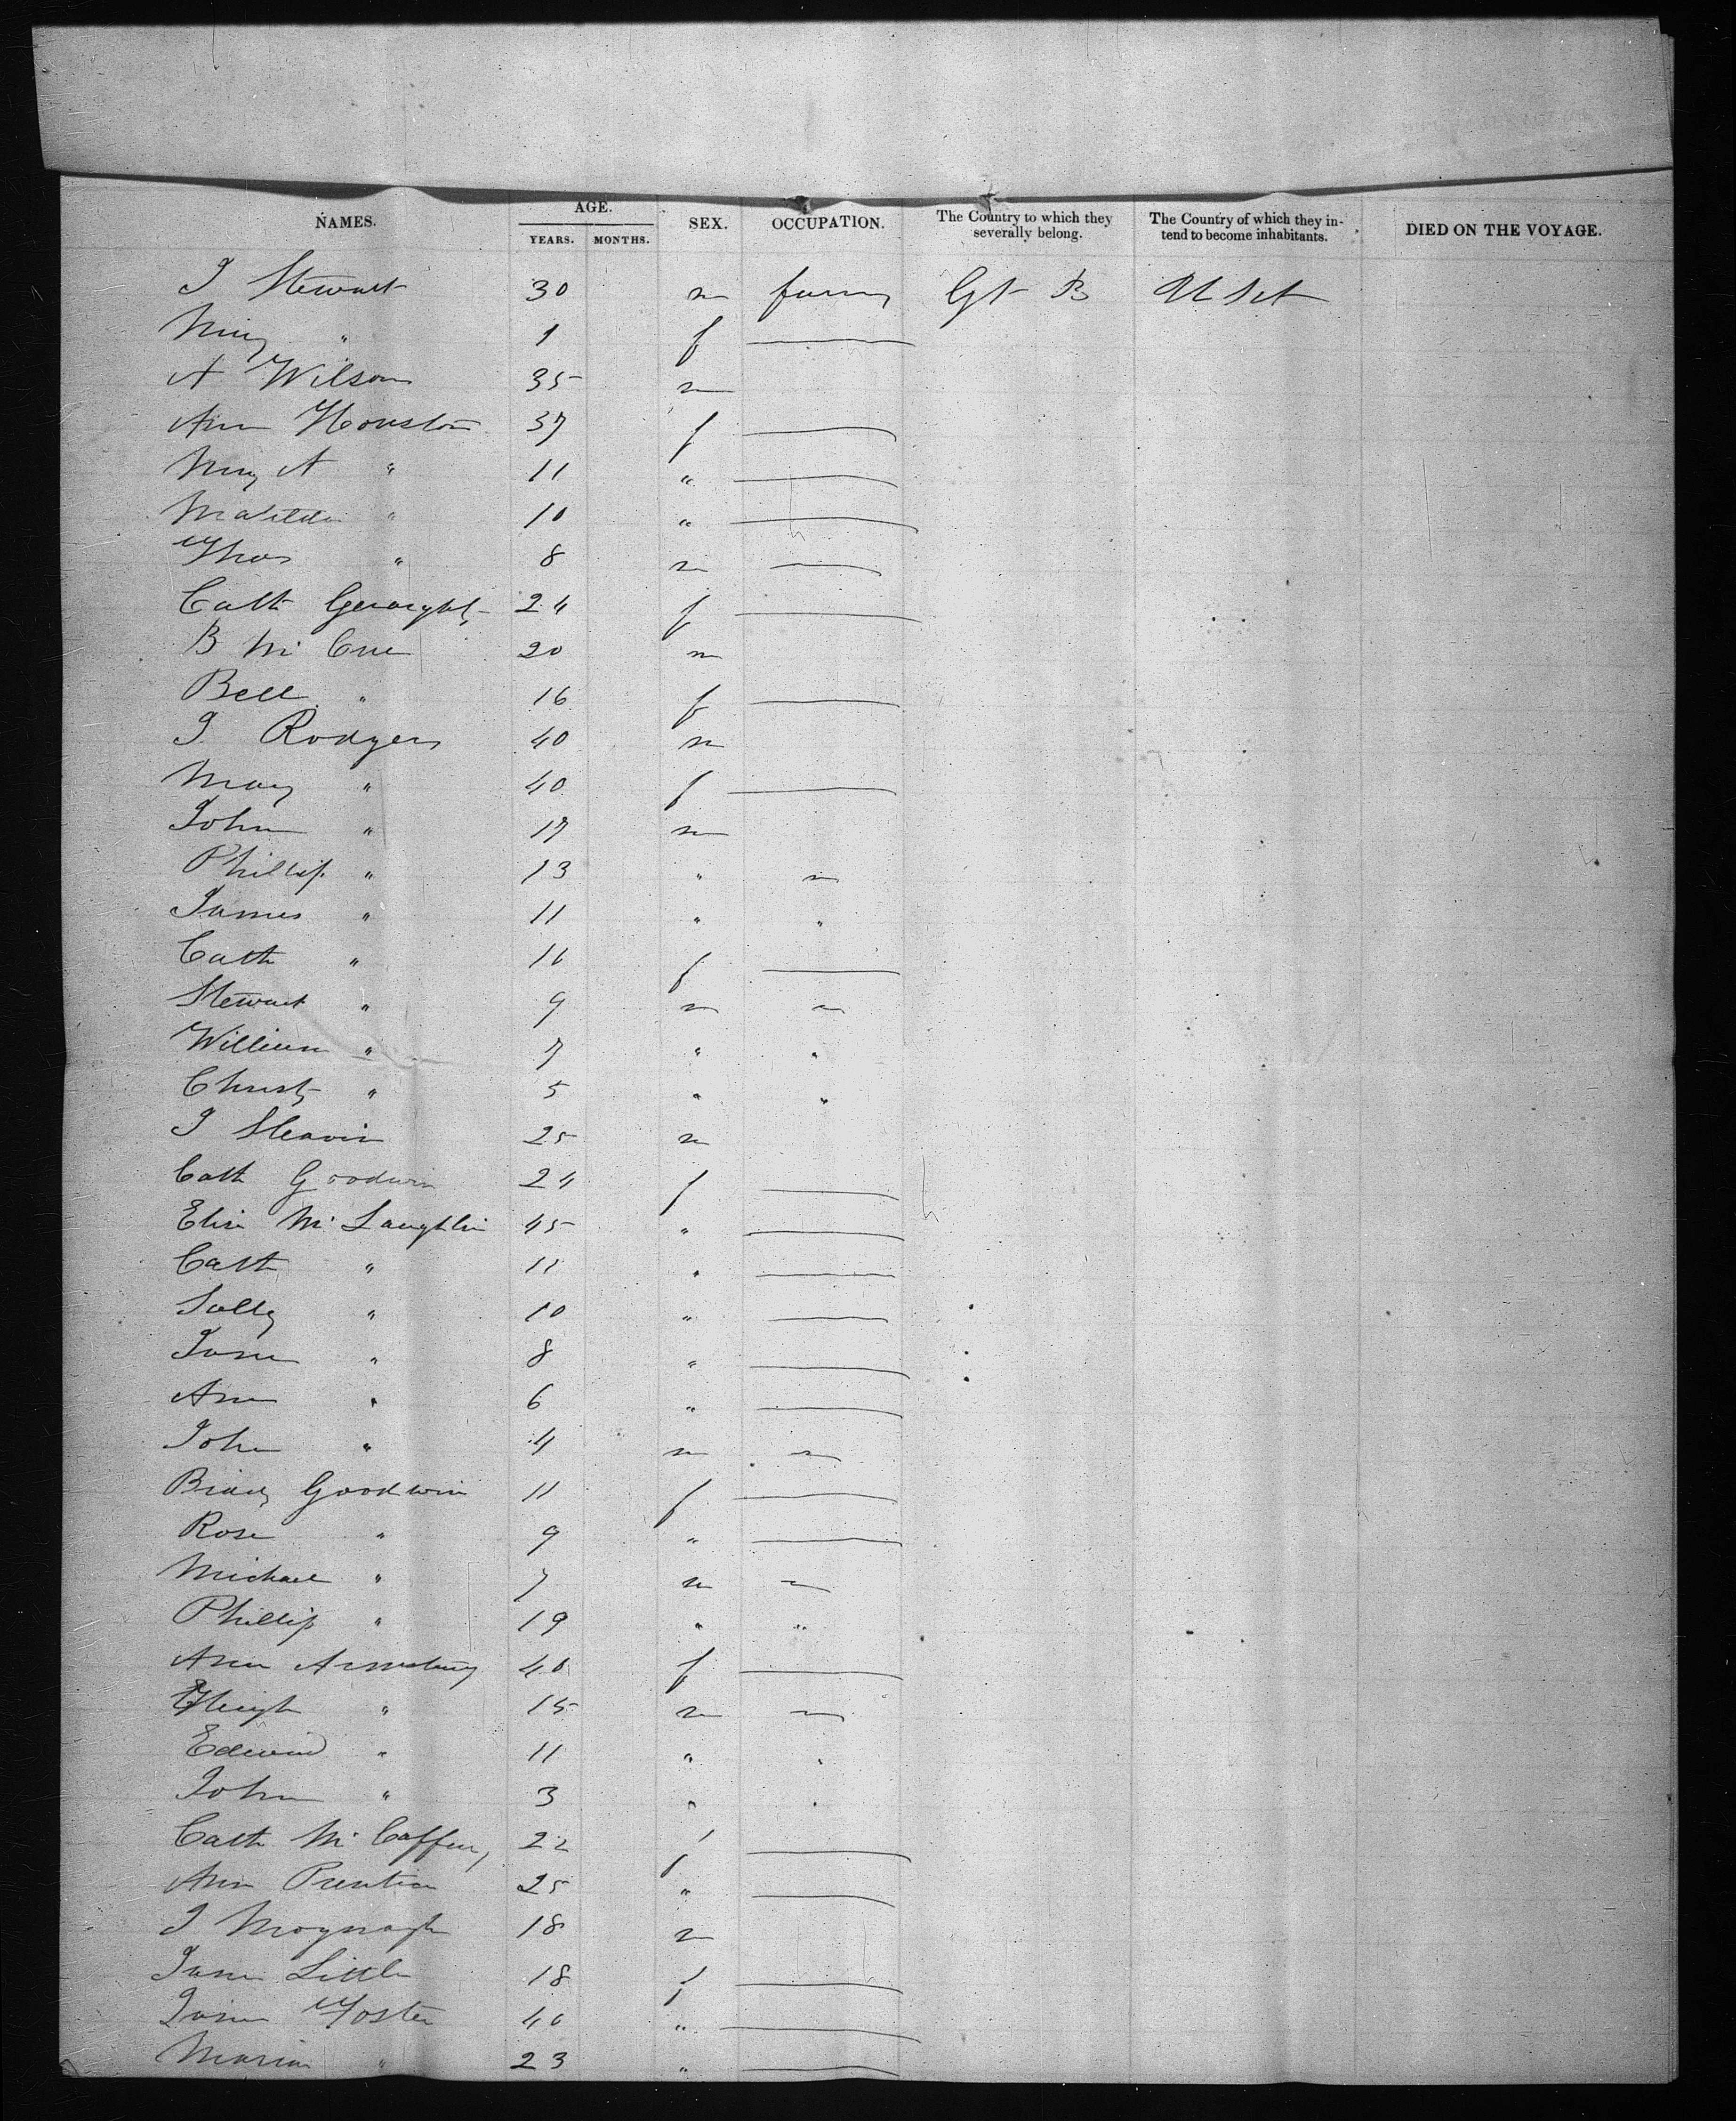 NAMES. AGE. YEARS. MONTHS. SEX. OCCUPATION. The Country to which they severally belong. The Country of which they intend to become inhabitants. DIED ON THE VOYAGE.
J Stewart 30 m Gt B U St
Mary " 1 f
A Wilson 35 m
Ann Houston 37 f
Mary A " 11 "
Matilda " 10 "
Thos " 8 m
Cath Geraighty 24 f
B Mc Cue 20 m
Bell " 16 f
J Rodgers 40 m
Mary " 40 f
John " 17 m
Phillip " 13 " "
James " 11 " "
Cath " 11 f
Stewart " 9 m
William " 7 " "
Christy " 5 " "
J Slevin 25 m
Cath Goodwin 24 f
Eliza Mc Laughlin 45 "
Cath " 11 "
Sally " 10 "
Jane " 8 "
Ann " 6 "
John " 4 m
Goodwin 11 f
Rose " 9 "
Michael " 7 m
Phillip " 19 " "
Ann Armstrong 40 f
Hugh " 15 m
Edward " 11 " "
John " 3 " "
Cath Mc Caffery 22 f
Ann Prentice 25 "
J Moynagh 18 m
Jane Little 18 f
Jane Foster 40 "
Maria " 23 "